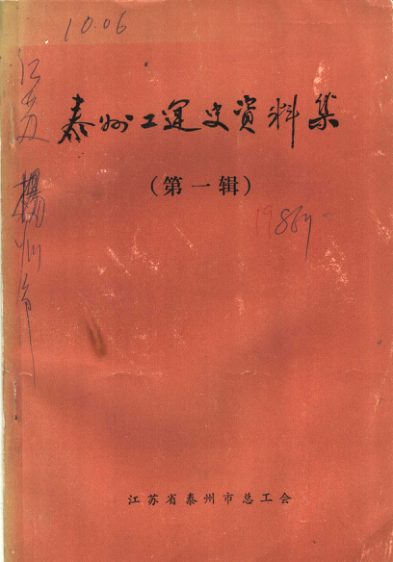 10.06
江苏
扬州市
泰州工运史资料集
(第一辑)
江苏省泰州市总工会